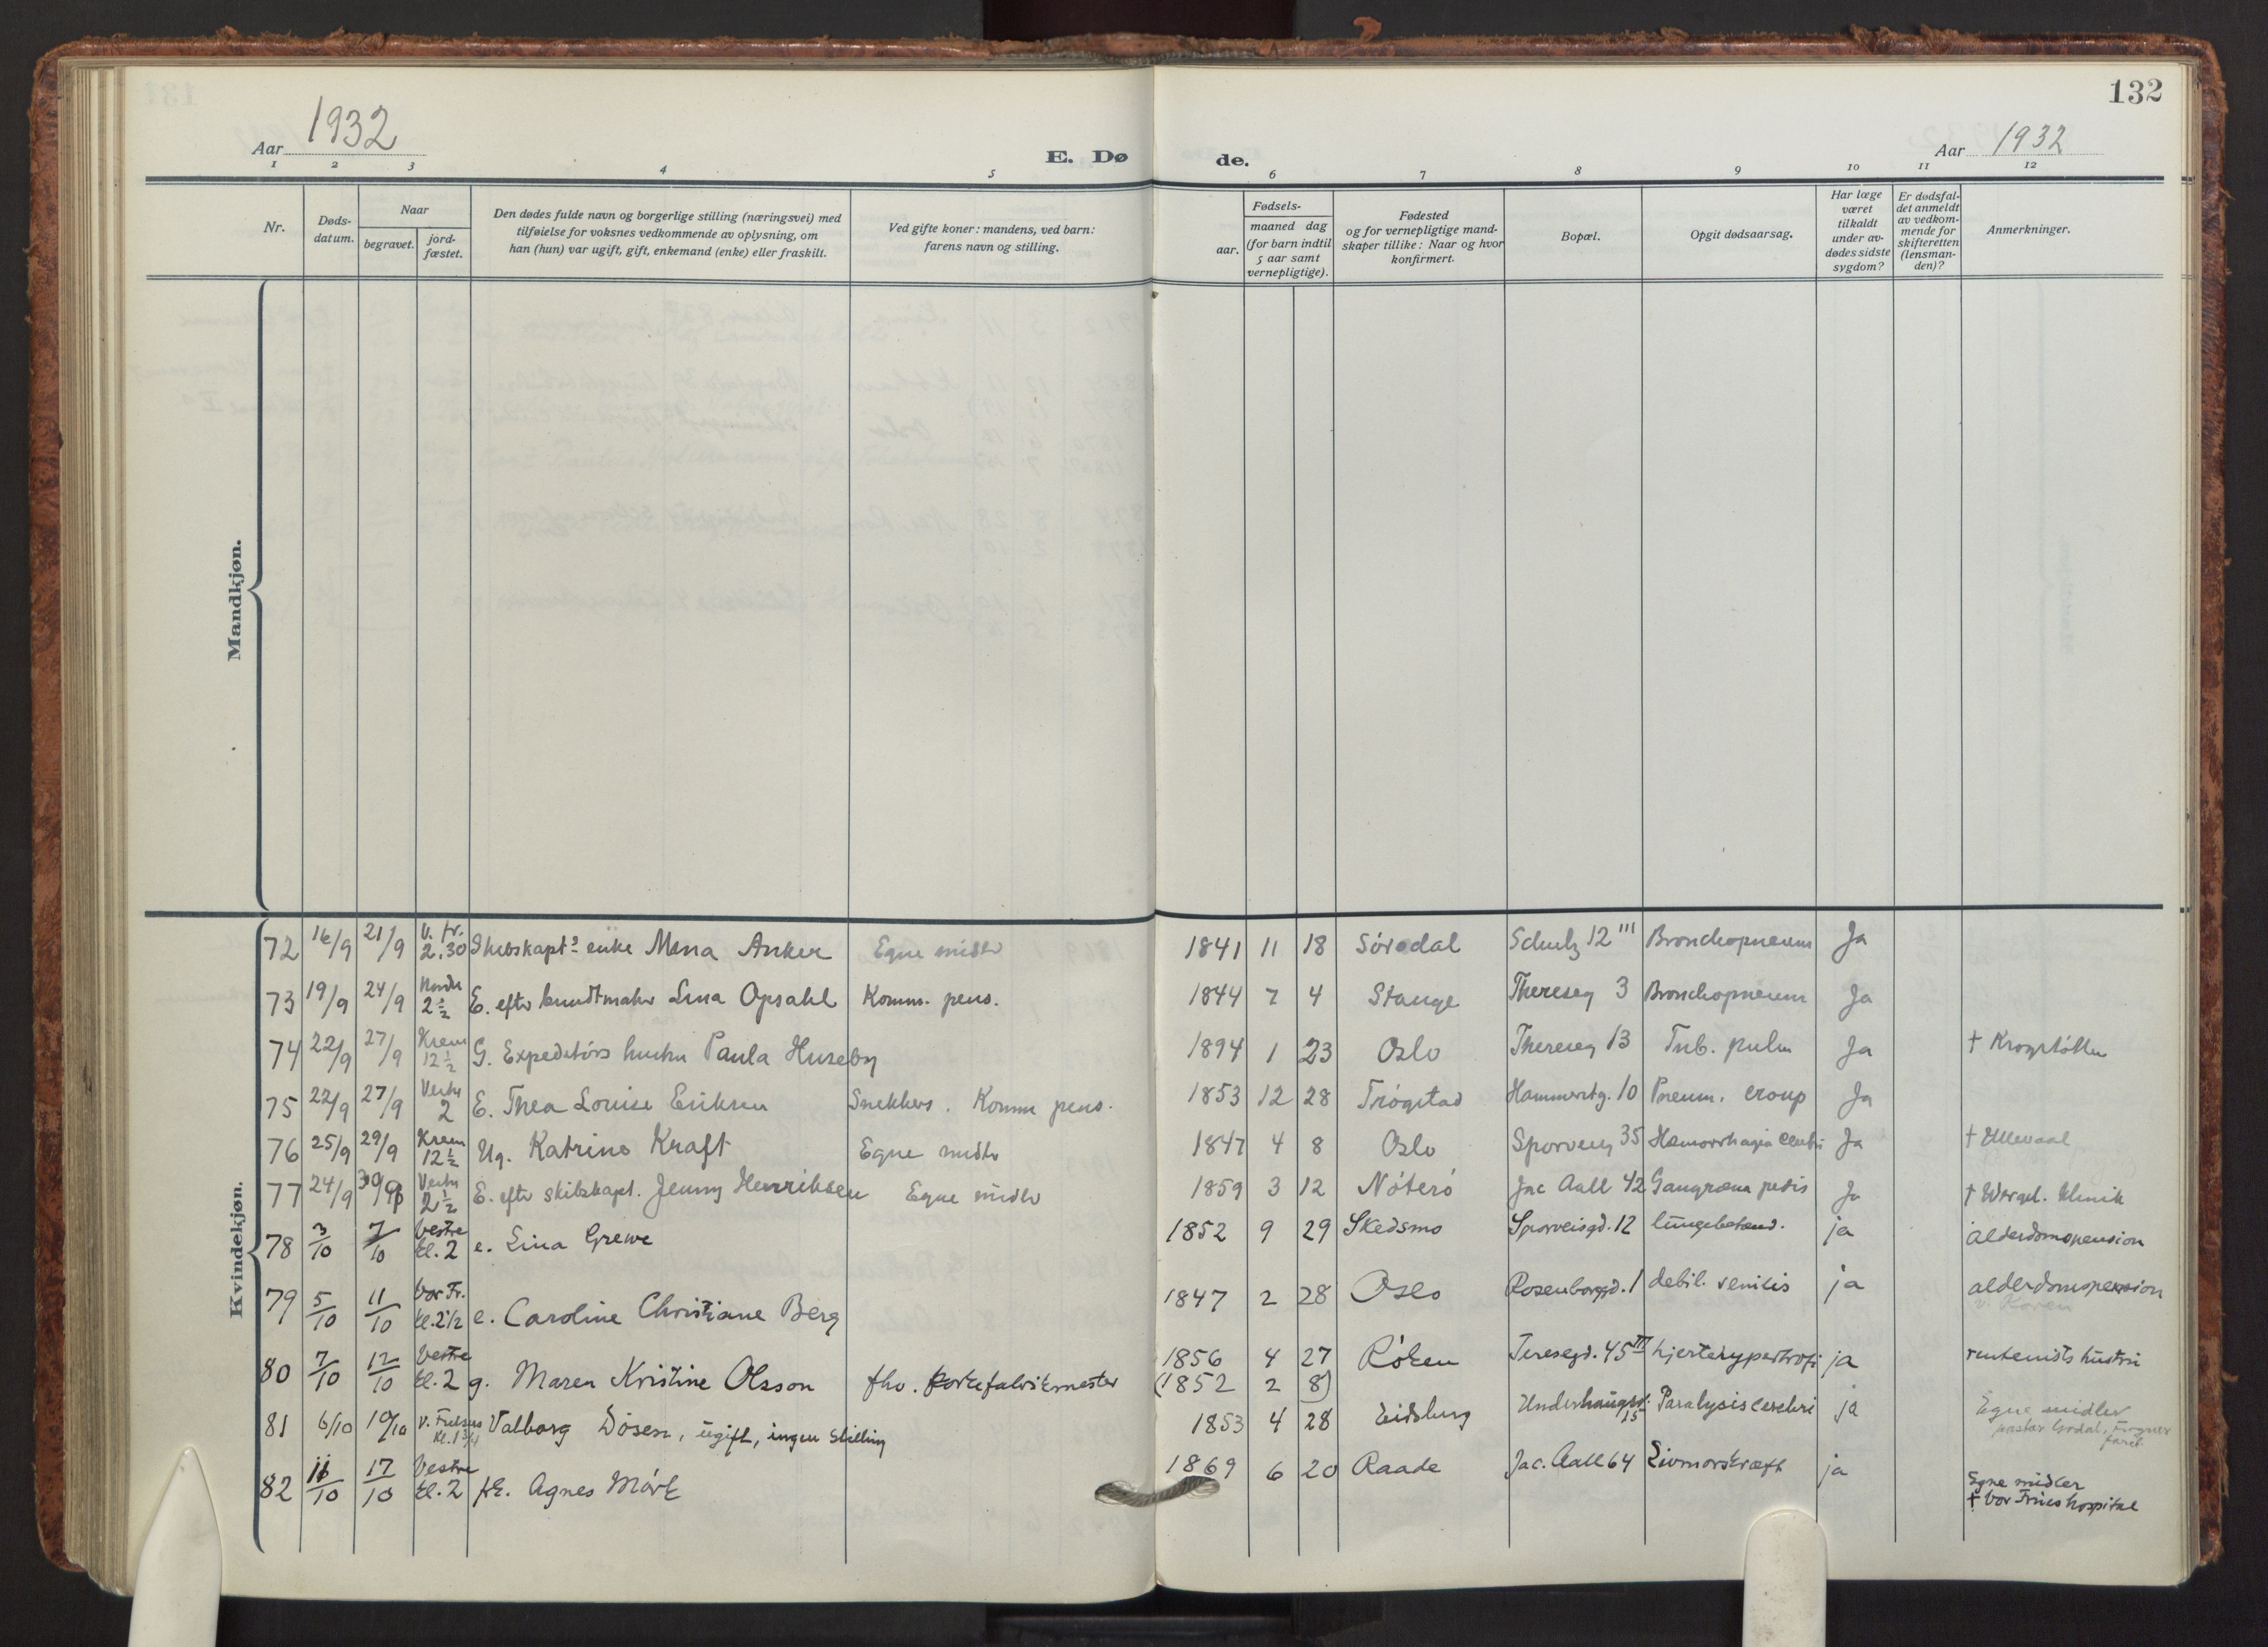 132
Aar 1932
E. Dø
de.
Aar 1932
1 2 3 4 5
6 7 8 9 10 11 12
Nr.
Døds-
datum.
Naar
begravet.
jord-
fæstet.
Den dødes fulde navn og borgerlige stilling (næringsvei) med
tilføielse for voksnes vedkommende av oplysning, om
han (hun) var ugift, gift, enkemand (enke) eller fraskilt.
Ved gifte koner: mandens, ved barn:
farens navn og stilling.
Fødsels-
aar.
maaned dag
(for barn indtil
5 aar samt
vernepligtige).
Fødested
og for vernepligtige mand-
skaper tillike: Naar og hvor
konfirmert.
Bopæl.
Opgit dødsaarsag.
Har læge
været
tilkaldt
under av-
dødes sidste
sygdom?
Er dødsfal-
det anmeldt
av vedkom-
mende for
skifteretten
(lensman-
den)?
Anmerkninger.
Mandkjøn.
Kvindekjøn.
72 16/9 21/9 V. fr. 2.30 Skibskapt's enke Mena Anker Egne midlr 1841 11 18 Sørødal Schulz 12 III Bronchopneum Ja
73 19/9 24/9 Nordre 2 1/2 E. eftr bundtmakr Lina Opsahl Komm. pens. 1844 7 4 Stange Thereseg 3 Bronchopneum Ja
74 22/9 27/9 Krem 12 1/2 G. Expeditørs hustru Paula Huseby 1894 1 23 Oslo Thereseg 13 Tub. pulm Ja † Krogstøtten
75 22/9 27/9 Vestre 2 E. Thea Louise Eriksen Snekkers. Komm pens. 1853 12 28 Trøgstad Hammerstg. 10 Pneum. croup Ja
76 25/9 29/9 Krem 12 1/2 Ug. Katrine Kraft Egne midlr 1847 4 8 Oslo Sporveisg 35 Hæmorrhagia cerebri Ja † Ullevaal
77 24/9 30/9 Vestre 2 1/2 E. eftr skibskapt. Jenny Henriksen Egne midlr 1859 3 12 Nøterø Jac Aall 42 Gangræna pedis Ja † Wergel. klinik
78 3/10 7/10 Vestre kl. 2 e. Lina Grewe 1852 9 29 Skedsmo Sporveisgd. 12 lungebetænd. ja alderdomspension
79 5/10 11/10 Vor Fr. kl. 2 1/2 e. Caroline Christiane Berg 1847 2 28 Oslo Rosenborggd. 1 debil. senilis ja alderdomspension
v. Koren
80 7/10 12/10 Vestre kl. 2 g. Maren Kristine Olsson fhv. kortefabrikmester 1856 4 27 Røken Teresegd. 45 III hjertehypertrofi ja rentenists hustru
(1852 2 8)
81 6/10 10/10 V. Frelsers kl. 1 3/4 Valborg Døsen, ugift, ingen stilling 1853 4 28 Eidsberg Underhaugsv. 15 Paralysis cerebri ja Egne midler
pastor Gordal, Frogner
82 11/10 17/10 Vestre kl. 2 frk. Agnes Mørk 1869 6 20 Raade Jac. Aall 64 Livmorskræft ja Egne midler
† Vor Frues hospital